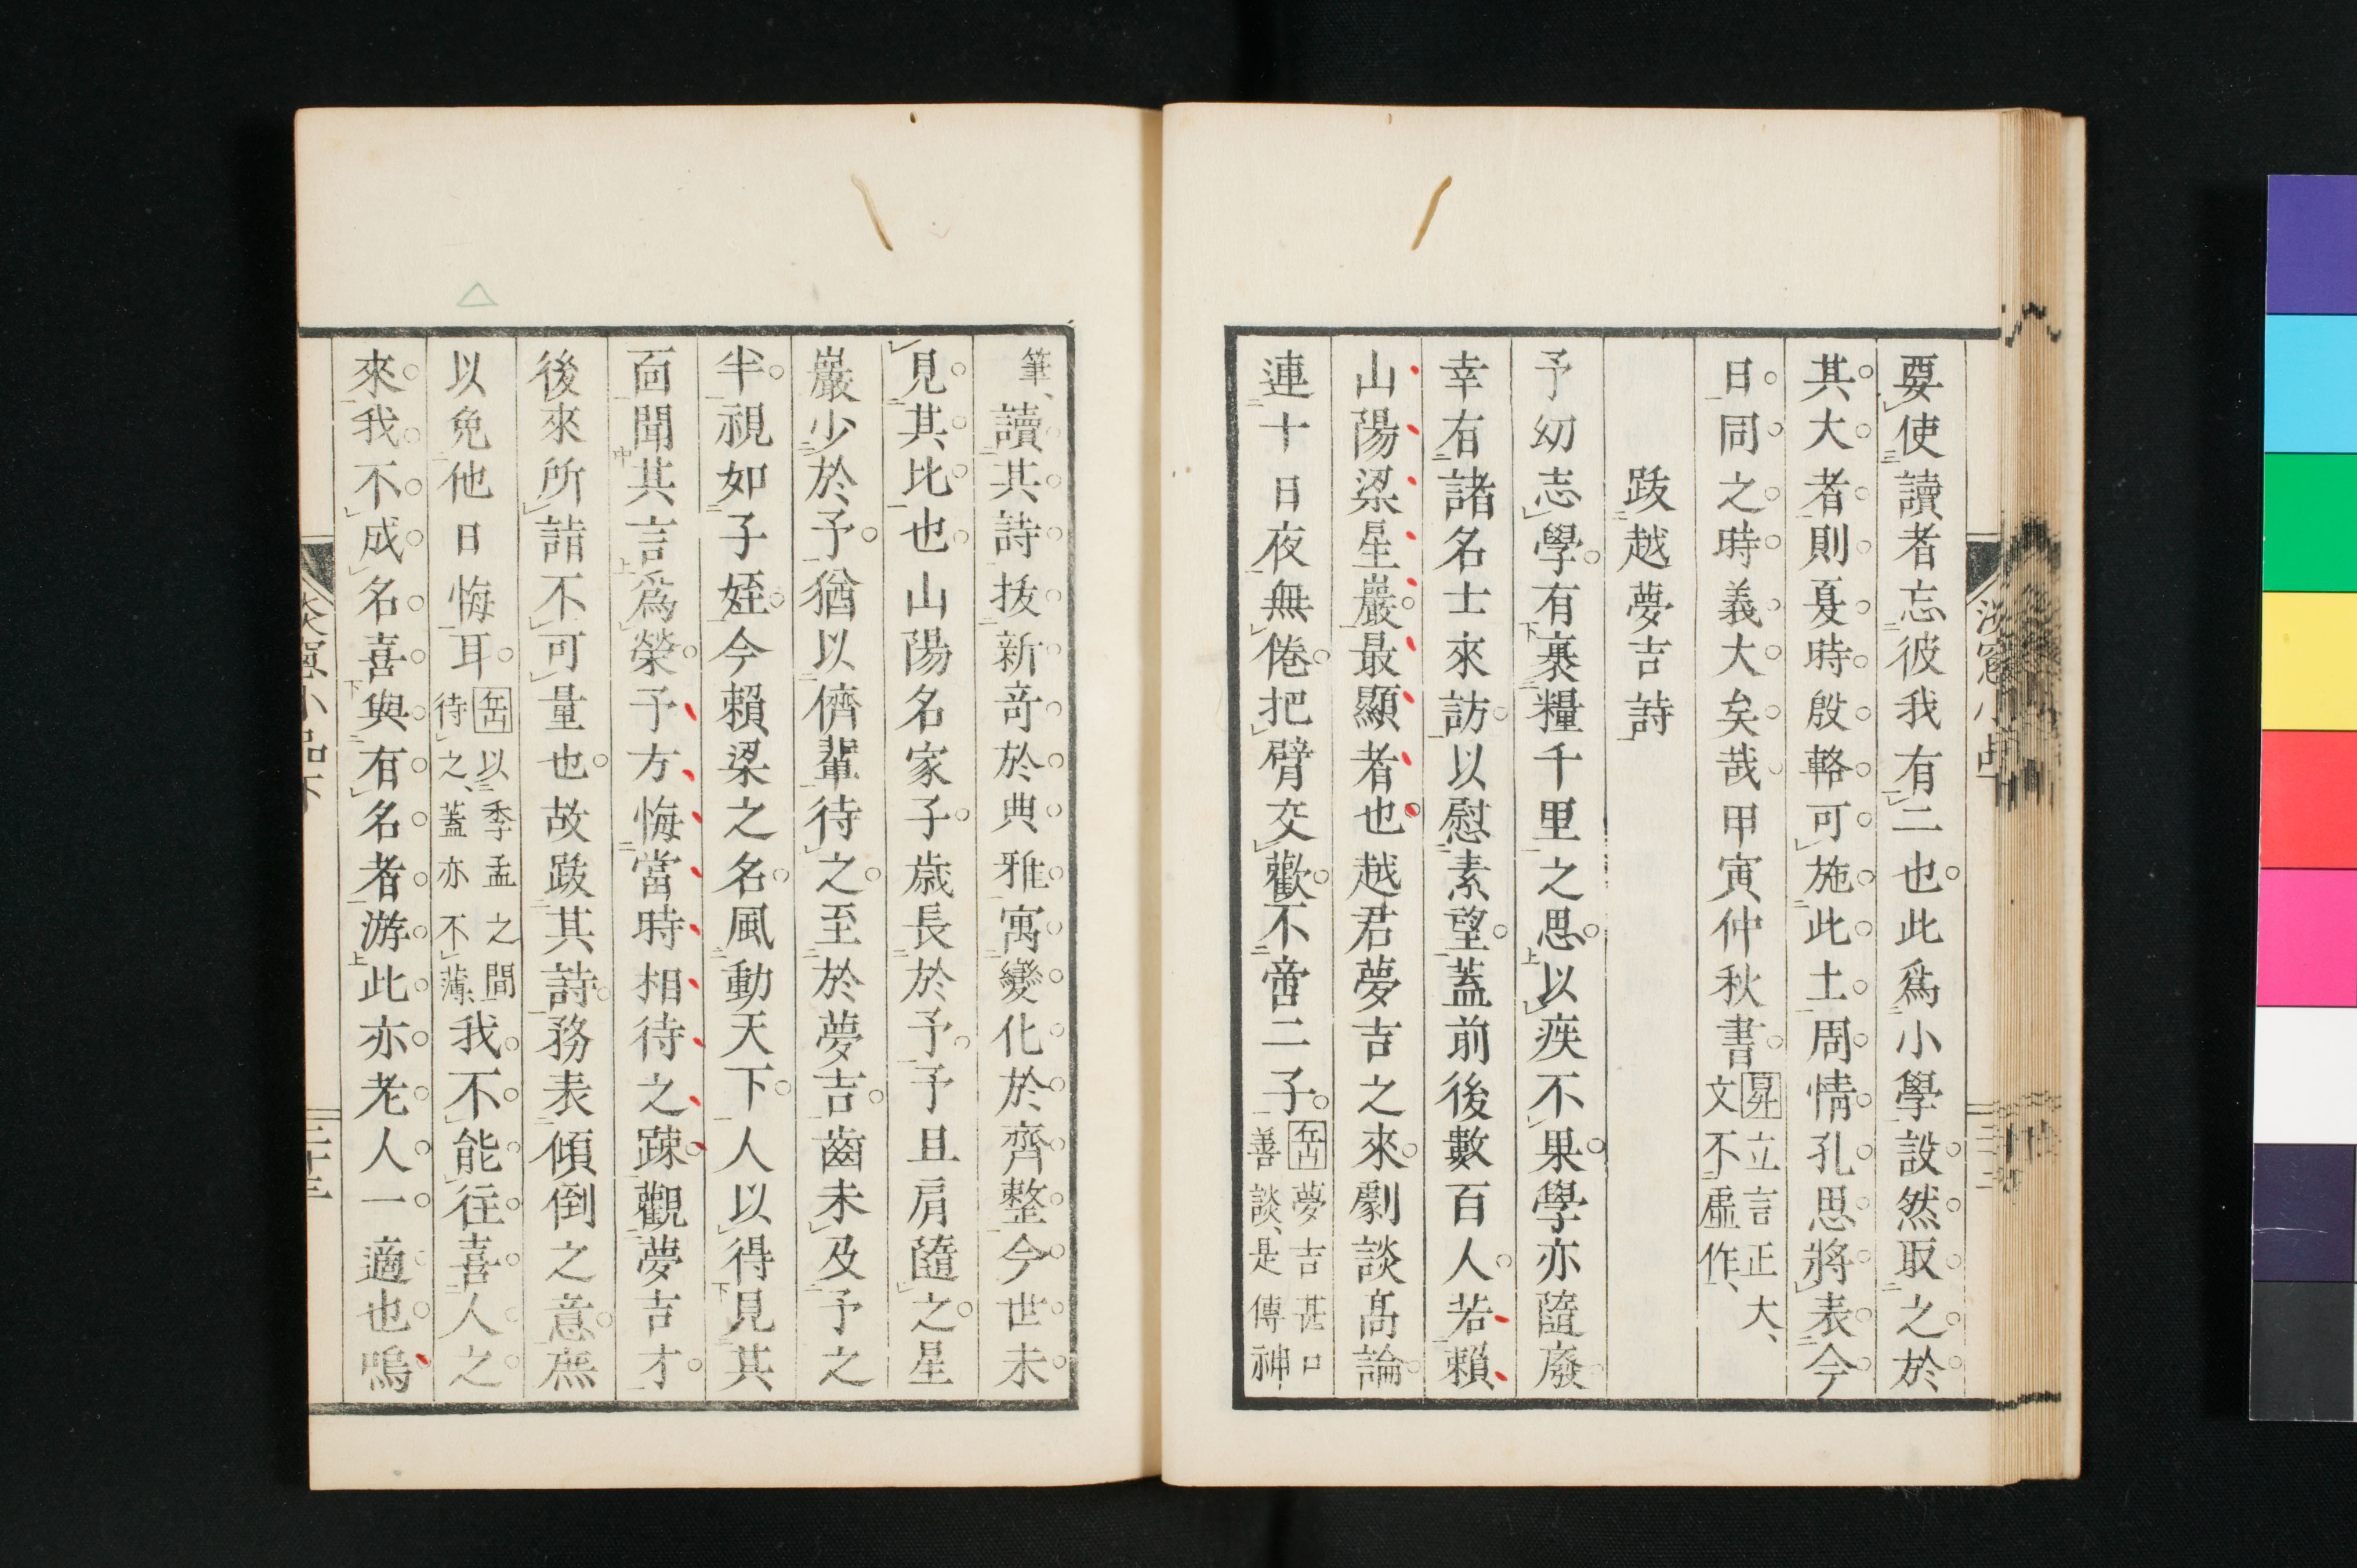 要使讀者忘彼我有二也此爲小學設然取之於
其大者則夏時殷輅可施此土周情孔思將表今
日同之時義大矣哉甲寅仲秋書昇立言正大、文不虛作、
跋越夢吉詩
予幼志學有裹糧千里之思以疾不果學亦隨廢
幸有諸名士來訪以慰素望蓋前後數百人若賴
山陽梁星巖最顯者也越君夢吉之來劇談高論
連十日夜無倦把臂交歡不啻二子缶夢吉甚口善談、是傳神
筆、讀其詩拔新竒於典雅寓變化於齊整今世未
見其比也山陽名家子歳長於予予且肩隨之星
巖少於予猶以儕輩待之至於夢吉齒未及予之
半視如子姪今賴梁之名風動天下人以得見其
面聞其言爲榮予方悔當時相待之踈觀夢吉才
後來所詣不可量也故跋其詩務表傾倒之意庶
以免他日悔耳缶以季孟之間待之、蓋亦不薄、我不能往喜人之
來我不成名喜與有名者游此亦老人一適也嗚
三十三